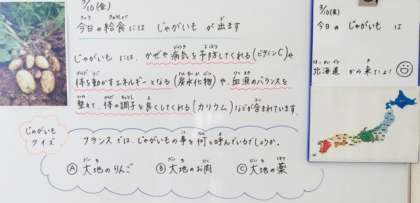 3/10(金)
今日の給食には じゃがいも が 出ます
じゃがいも には、かぜや 病気を 予防してくれる(ビタミンC)や
体を動かすエネルギーとなる(炭水化物)や 血液のバランスを
整えて 体の調子を 良くしてくれる(カリウム)などが 含まれています。
じゃがいも
クイズ
フランス では、じゃがいもの事を 何と呼んでいるでしょうか。
Ⓐ 大地のりんご Ⓑ 大地のお肉 Ⓒ 大地の薬
今日 の じゃがいも は
北海道 から 来たよ!